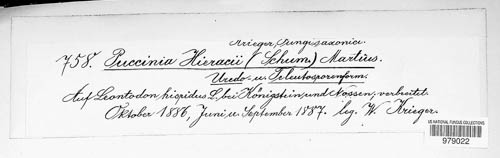 Krieger, Fungi saxonici.
758. Puccinia Hieracii (Schum.) Martius.
Uredo- u. Teleutosporenform.
Auf Leontodon hispidus L. bei Königstein und Nossen, verbreitet.
Oktober 1886, Juni u. September 1887. leg. W. Krieger.
US NATIONAL FUNGUS COLLECTIONS
979022